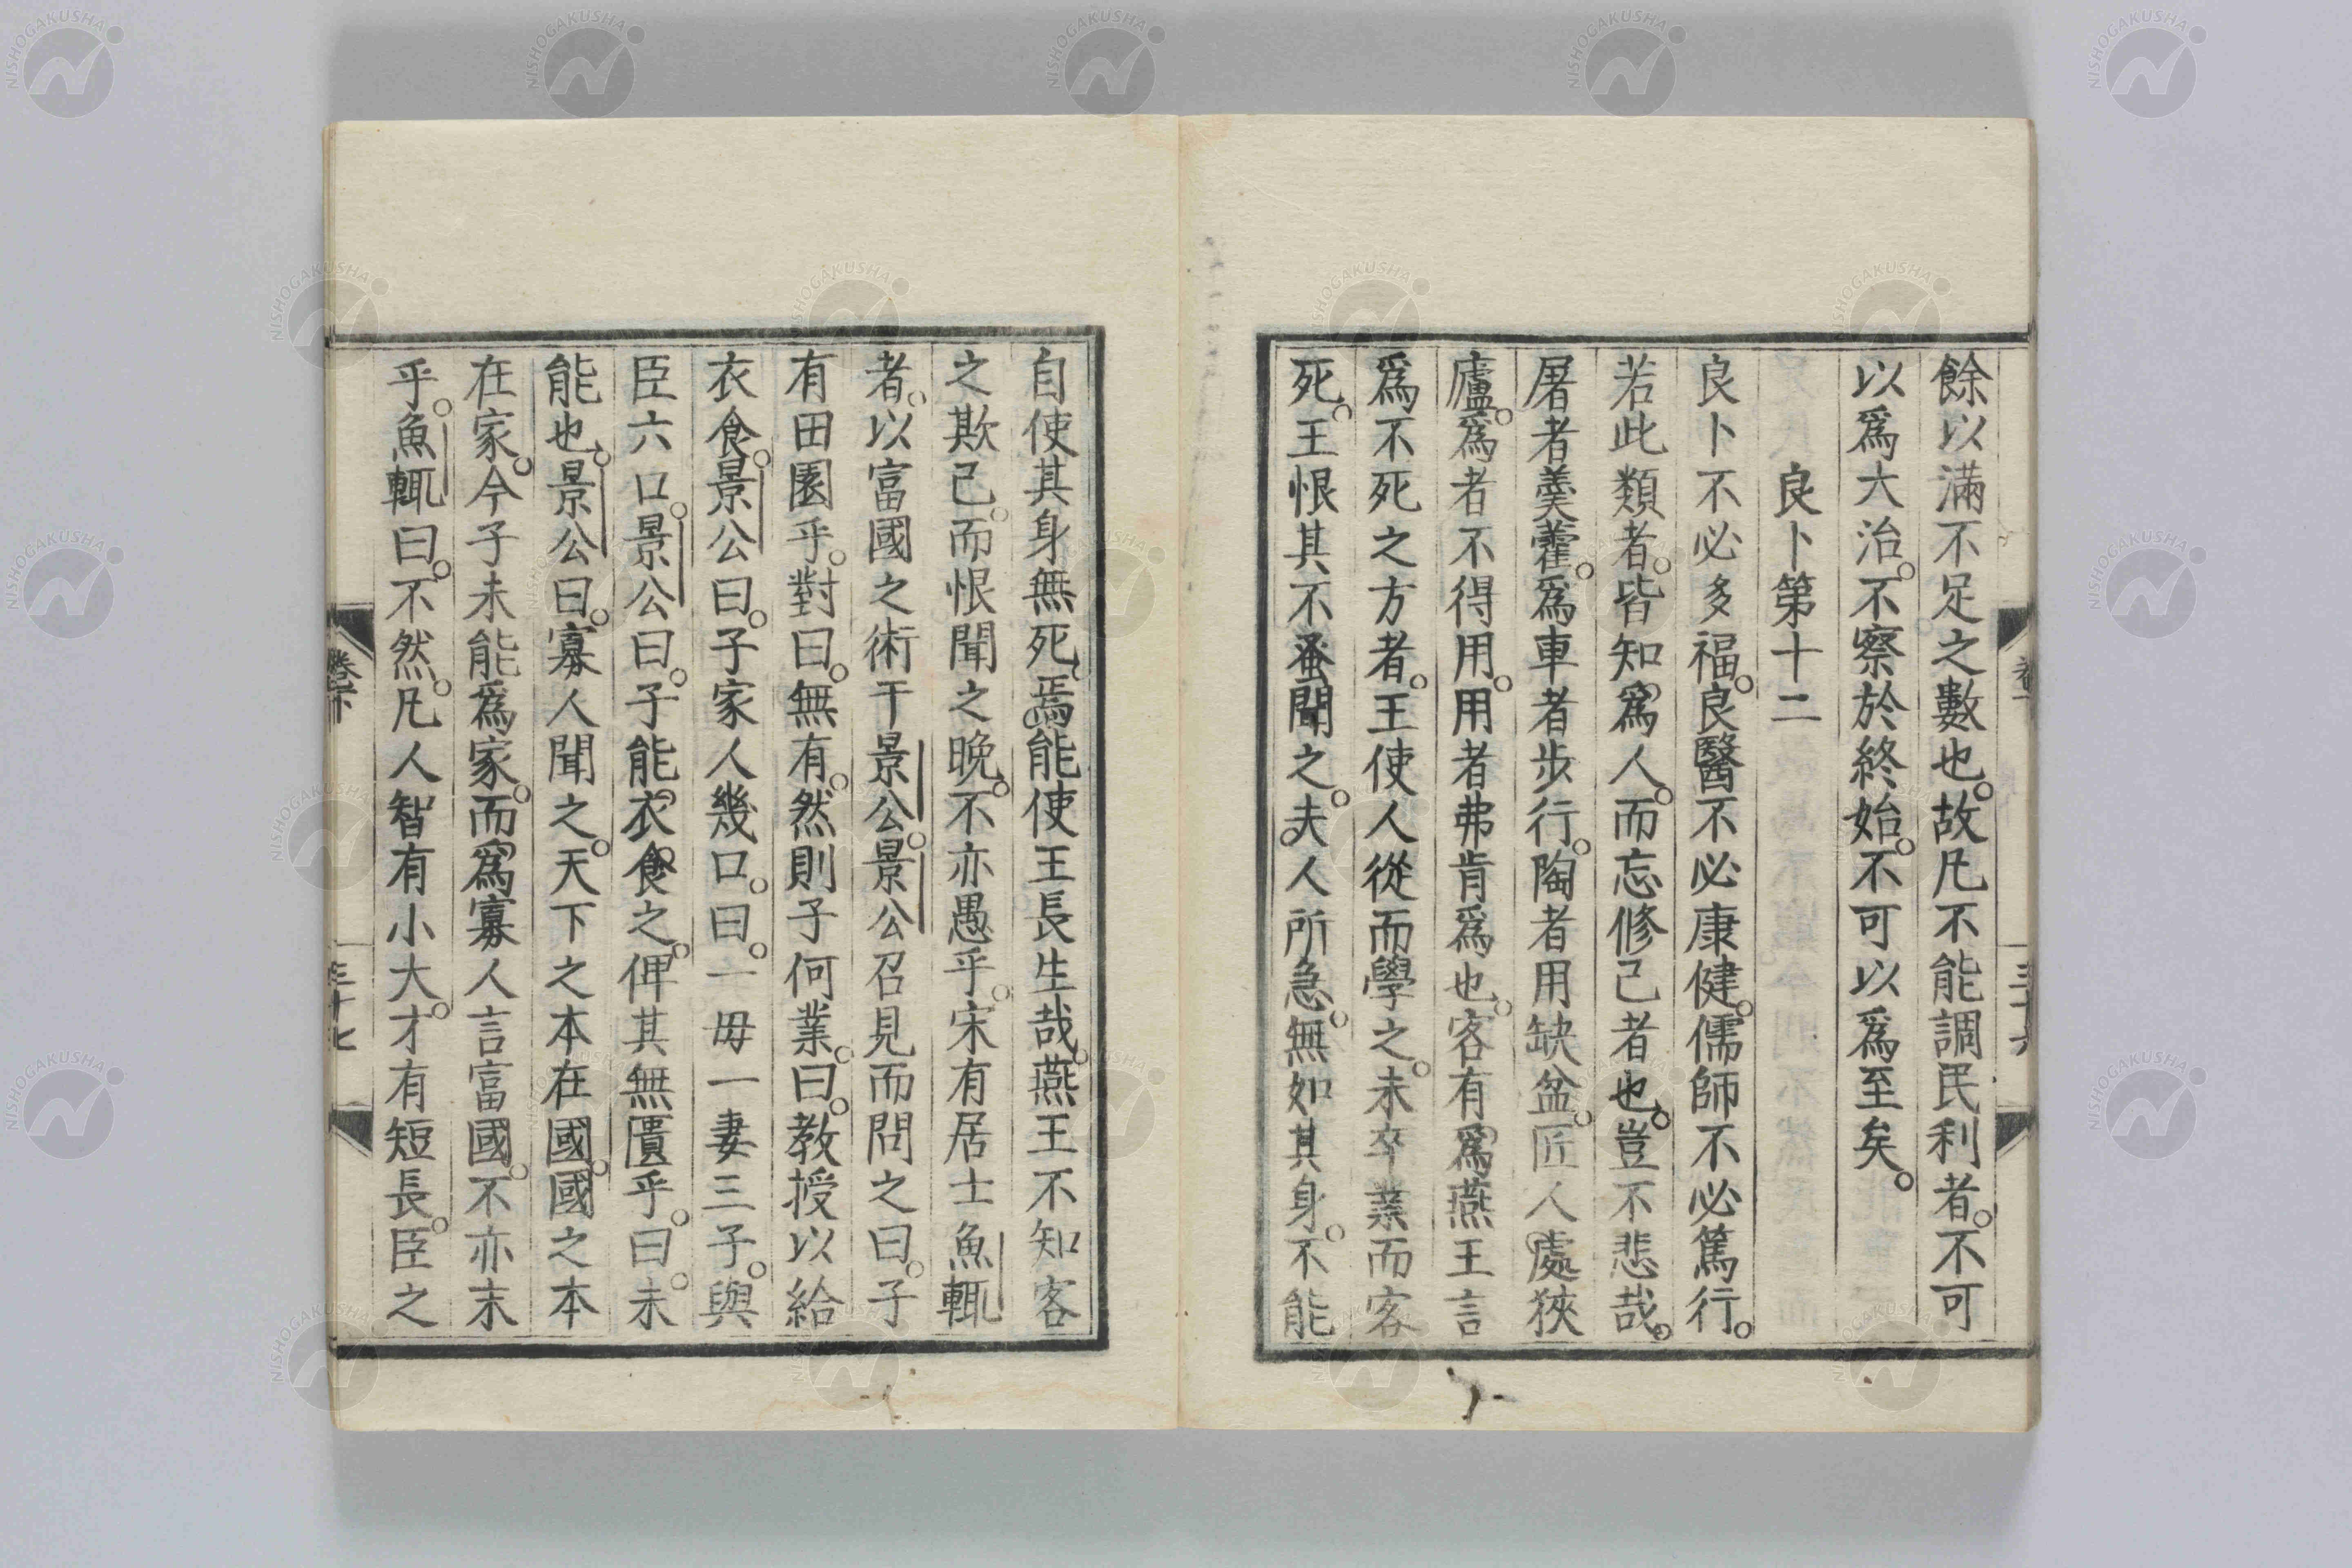 餘以滿不足之數也。故凡不能調民利者。不可
以爲大治。不察於終始。不可以爲至矣。
良卜第十二
良卜不必多福。良醫不必康健。儒師不必篤行。
若此類者。皆知爲人。而忘修己者也。豈不悲哉。
屠者羹藿。爲車者步行。陶者用缺盆。匠人處狹
廬。爲者不得用。用者弗肯爲也。客有爲燕王言
爲不死之方者。王使人從而學之。未卒業而客
死。王恨其不蚤聞之。夫人所急。無如其身。不能
自使其身無死。焉能使王長生哉。燕王不知客
之欺己。而恨聞之晚。不亦愚乎。宋有居士魚輒
者。以富國之術干景公。景公召見而問之曰。子
有田園乎。對曰。無有。然則子何業。曰。教授以給
衣食。景公曰。子家人幾口。曰。一母一妻三子。與
臣六口。景公曰。子能衣食之。俾其無匱乎。曰。未
能也。景公曰。寡人聞之。天下之本在國。國之本
在家。今子未能爲家。而爲寡人言富國。不亦末
乎。魚輒曰。不然。凡人智有小大。才有短長。臣之
卷下
三十七
NISHOGAKUSHA